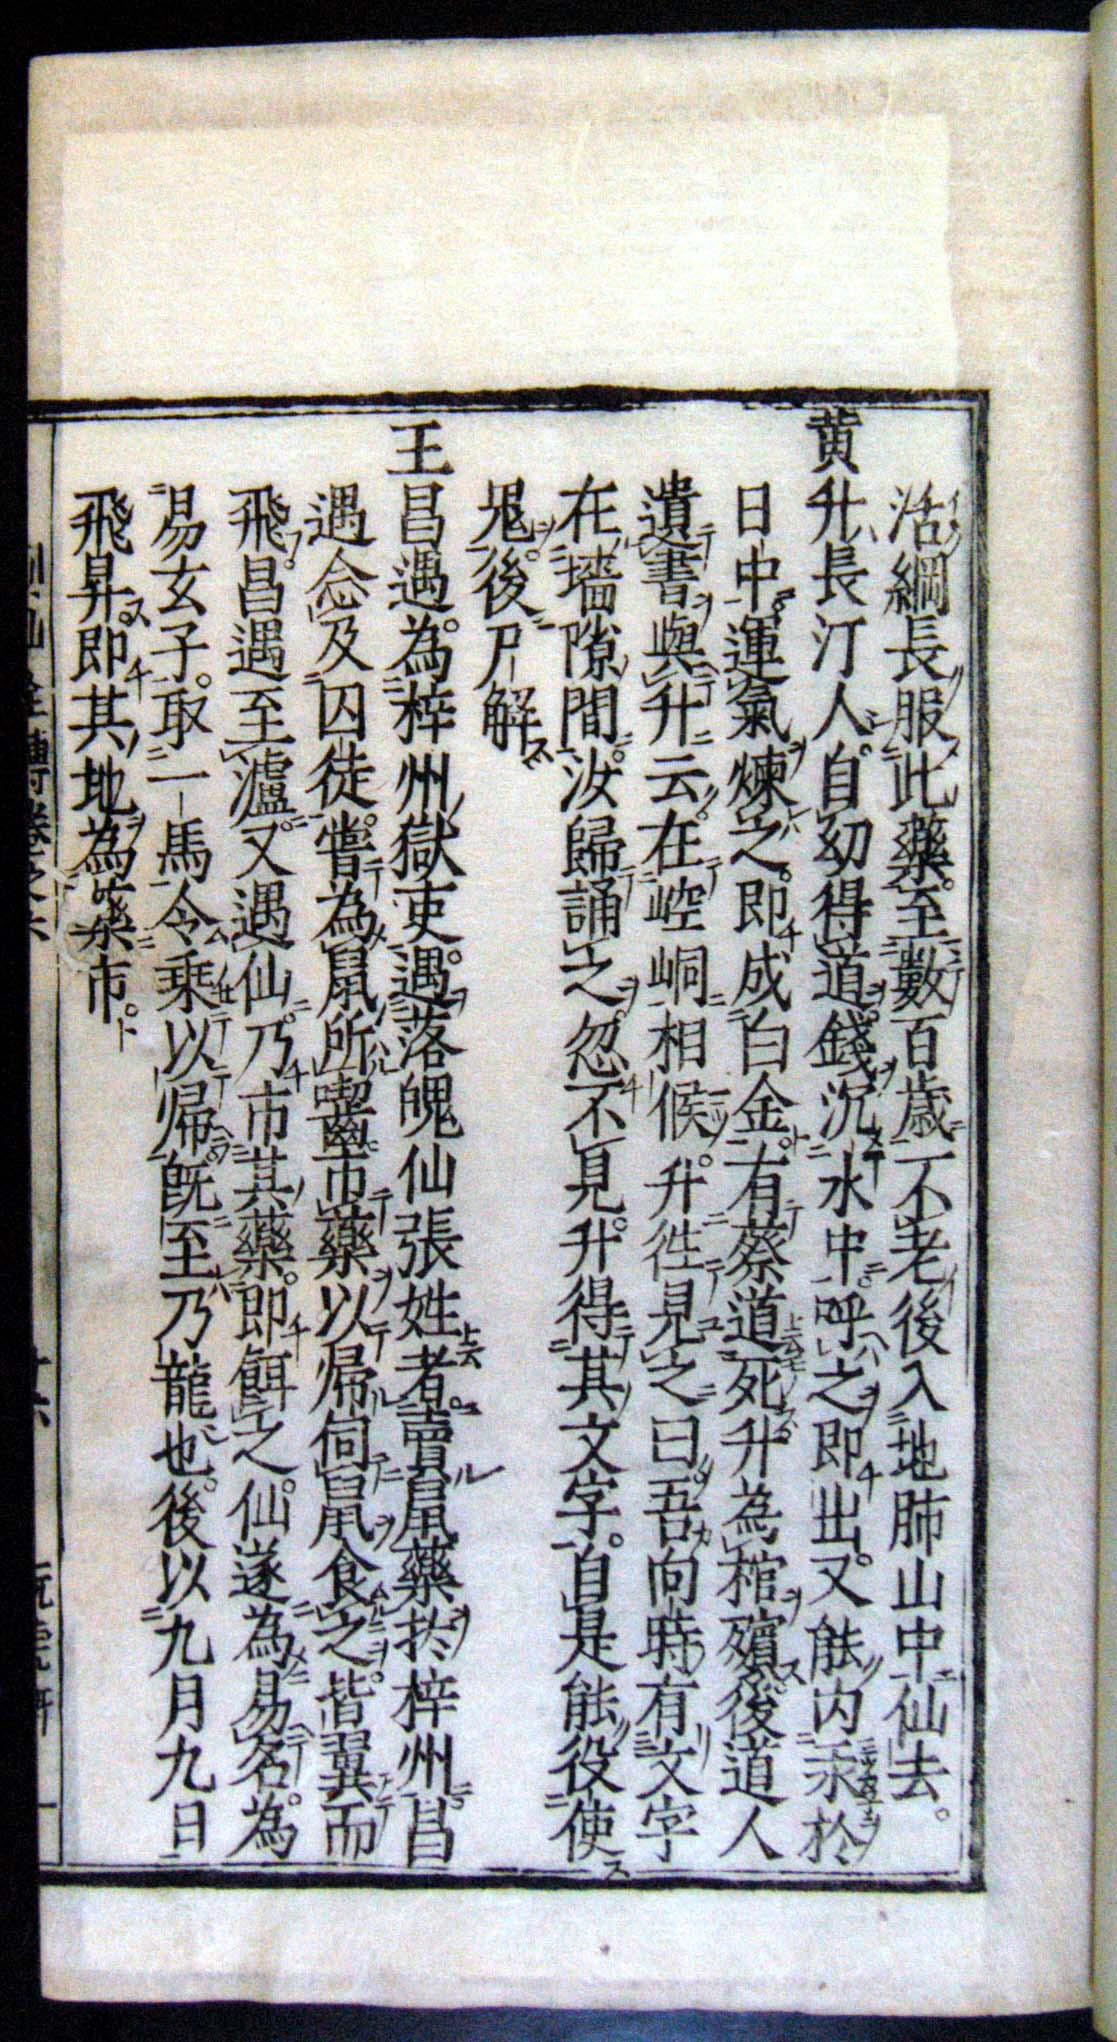 活綱長服此藥。至數百歲不老後入地肺山中仙去。
黄升長汀人。自幼得道。錢沉水中。呼之即出。又能内汞於
日中。運氣煉之。即成白金。有蔡道死升為棺殯。後道人
遺書與升云。在崆峒相候。升徃見之曰吾向時有文字
在墻隙間。汝歸誦之。忽不見。升得其文字。自是能役使
鬼。後尸解
王昌遇。為梓州獄吏。遇落魄仙張姓者。賣鼠藥扵梓州。昌
遇念及囚徒。嘗為鼠所囓。市藥以帰伺鼠食之。皆翼而
飛。昌遇至瀘。又遇仙。乃市其藥。即餌之。仙遂為易名。為
易玄子。取一馬令乗以帰。既至乃龍也。後以九月九日
飛昇。即其地為藥市。